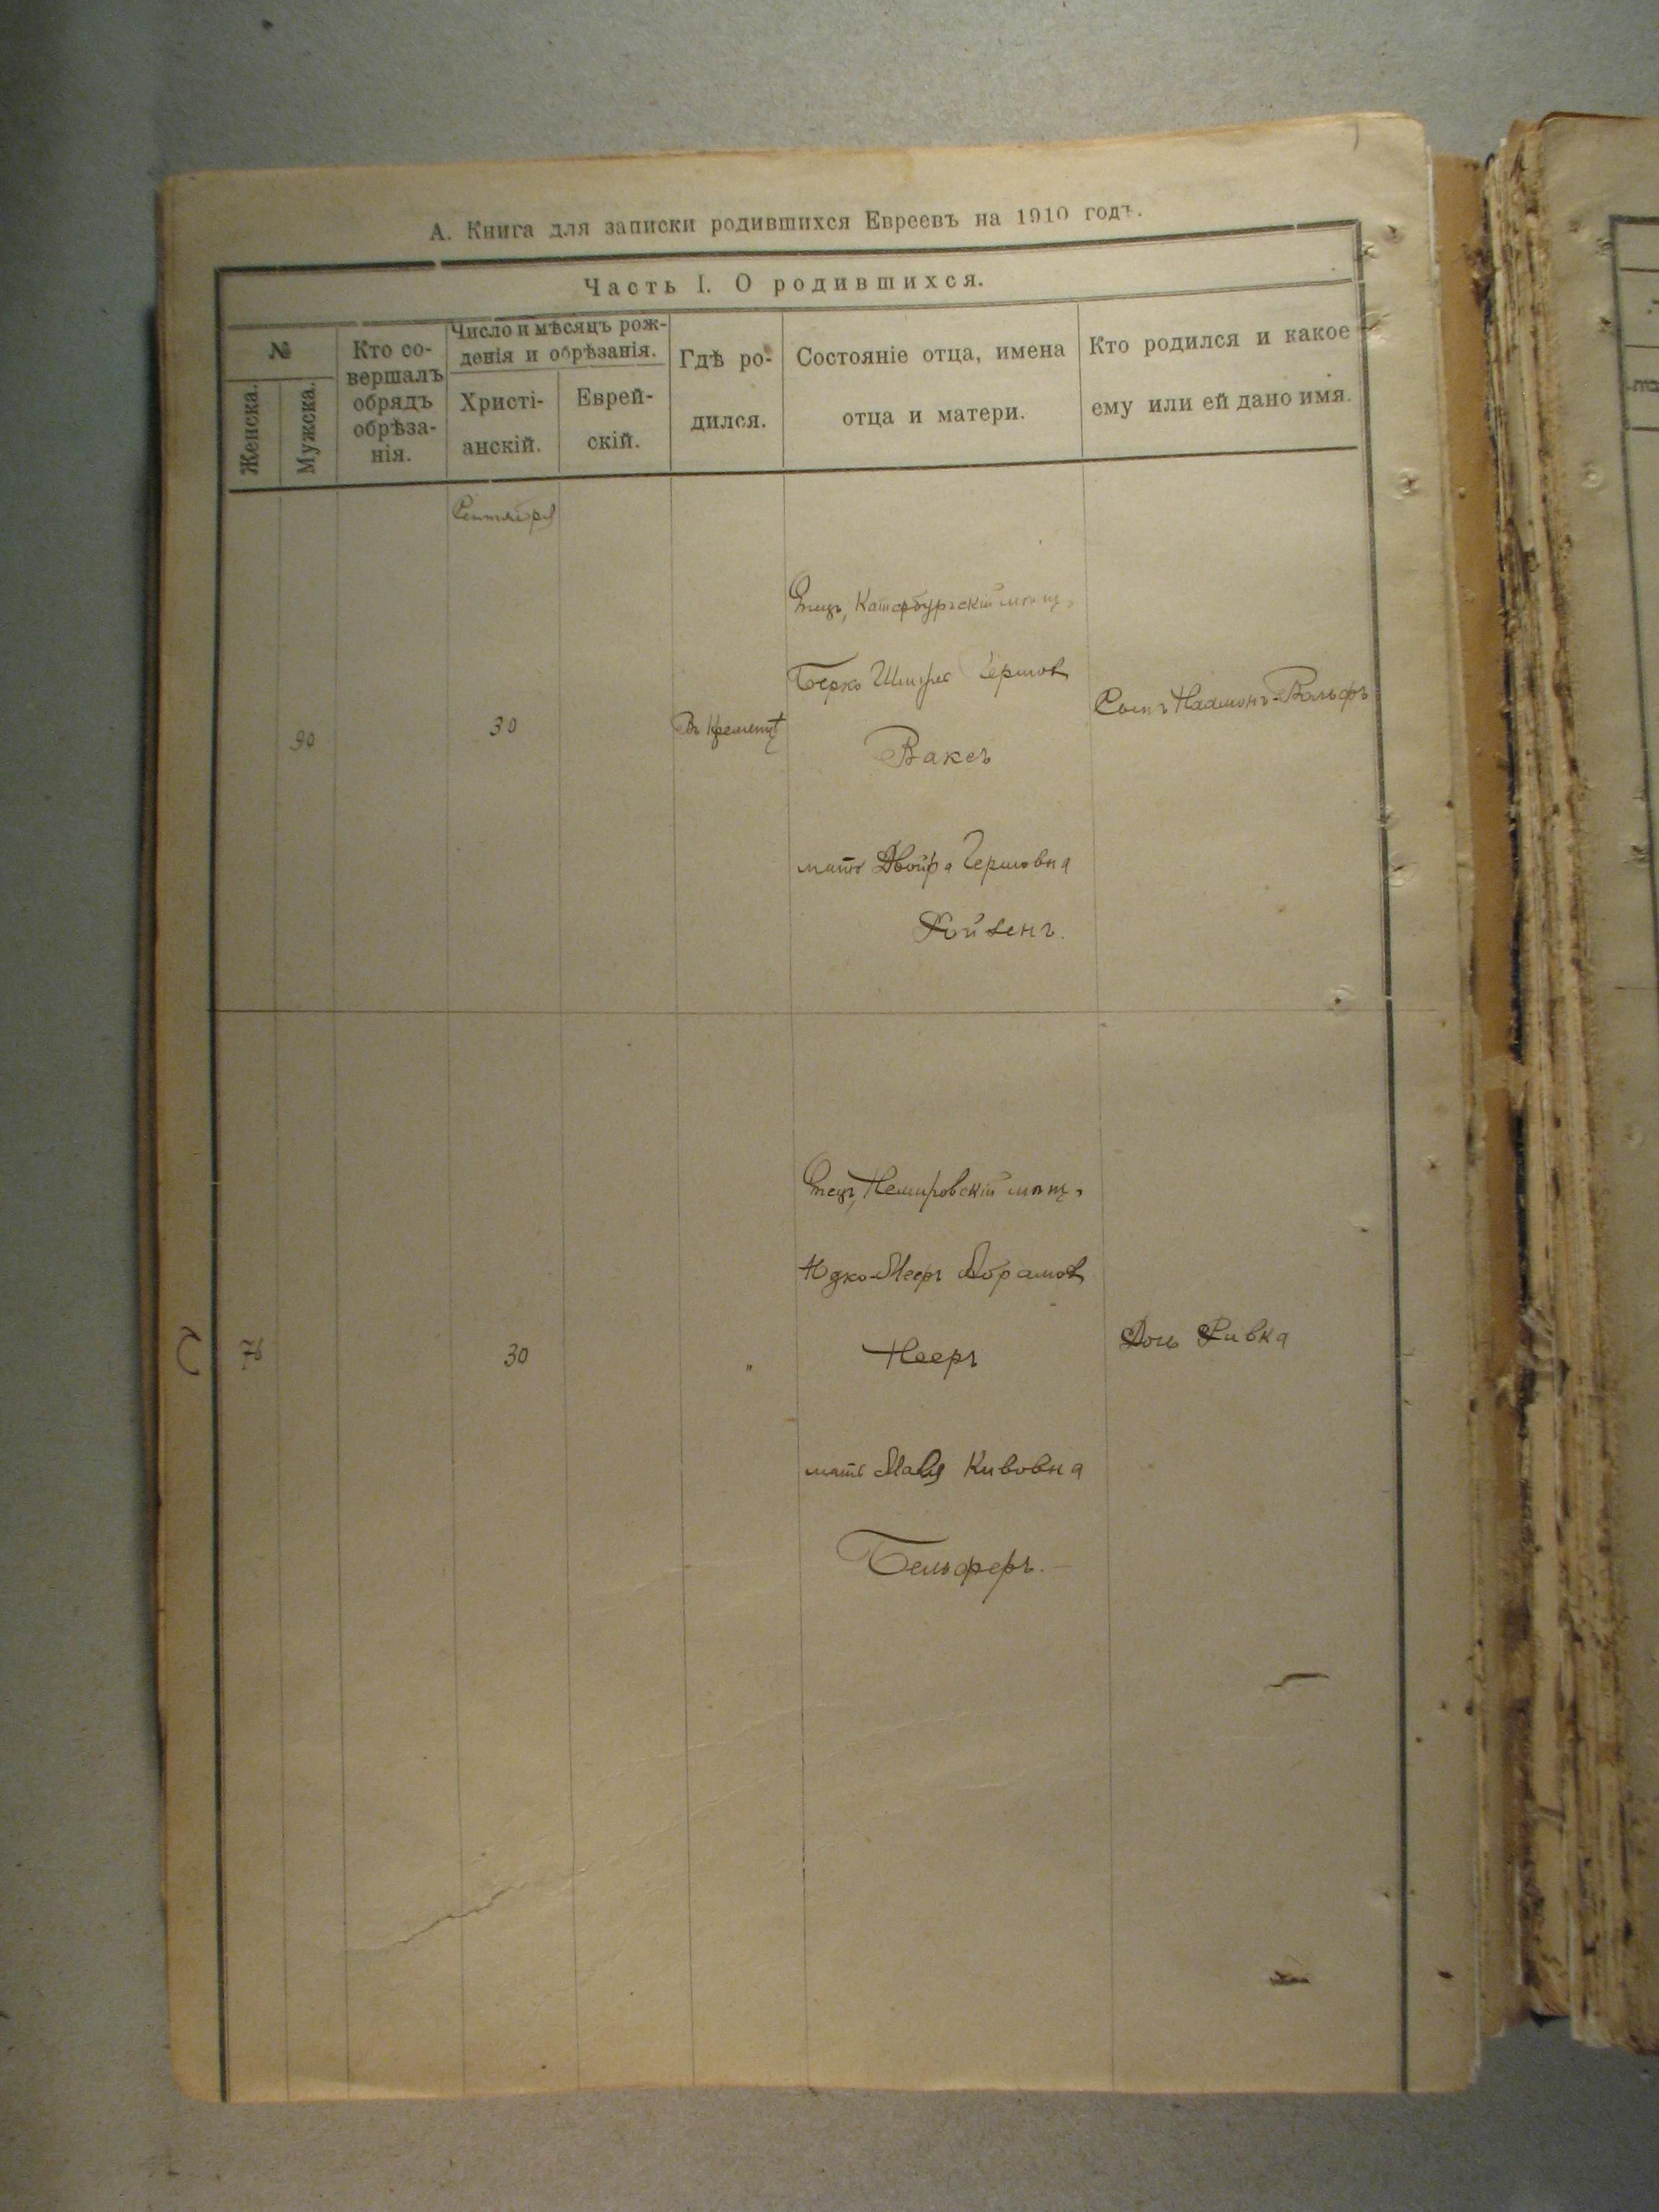 А. Книга для записки родившихся Евреевъ на 1910 годъ.
Часть I. О родившихся.
№
Женска.
Мужска.
Кто со-
вершалъ
обрядъ
обрѣза-
нія.
Число и мѣсяцъ рож-
денія и обрѣзанія.
Христі-
анскій.
Еврей-
скій.
Гдѣ ро-
дился.
Состояніе отца, имена
отца и матери.
Кто родился и какое
ему или ей дано имя.
Сентября
90
30
Въ Кременцѣ
Отецъ, Катербургскій мѣщ.
Берко Шмерл Гершов
Ваксъ
мать Двойра Гершовна
Ройзенъ.
Сынъ Нахмонъ-Вольфъ
76
30
"
Отецъ, Немировскій мѣщ.
Юдко-Мееръ Абрамов
Нееръ
мать Маля Кивовна
Бельферъ.
Дочь Ривка